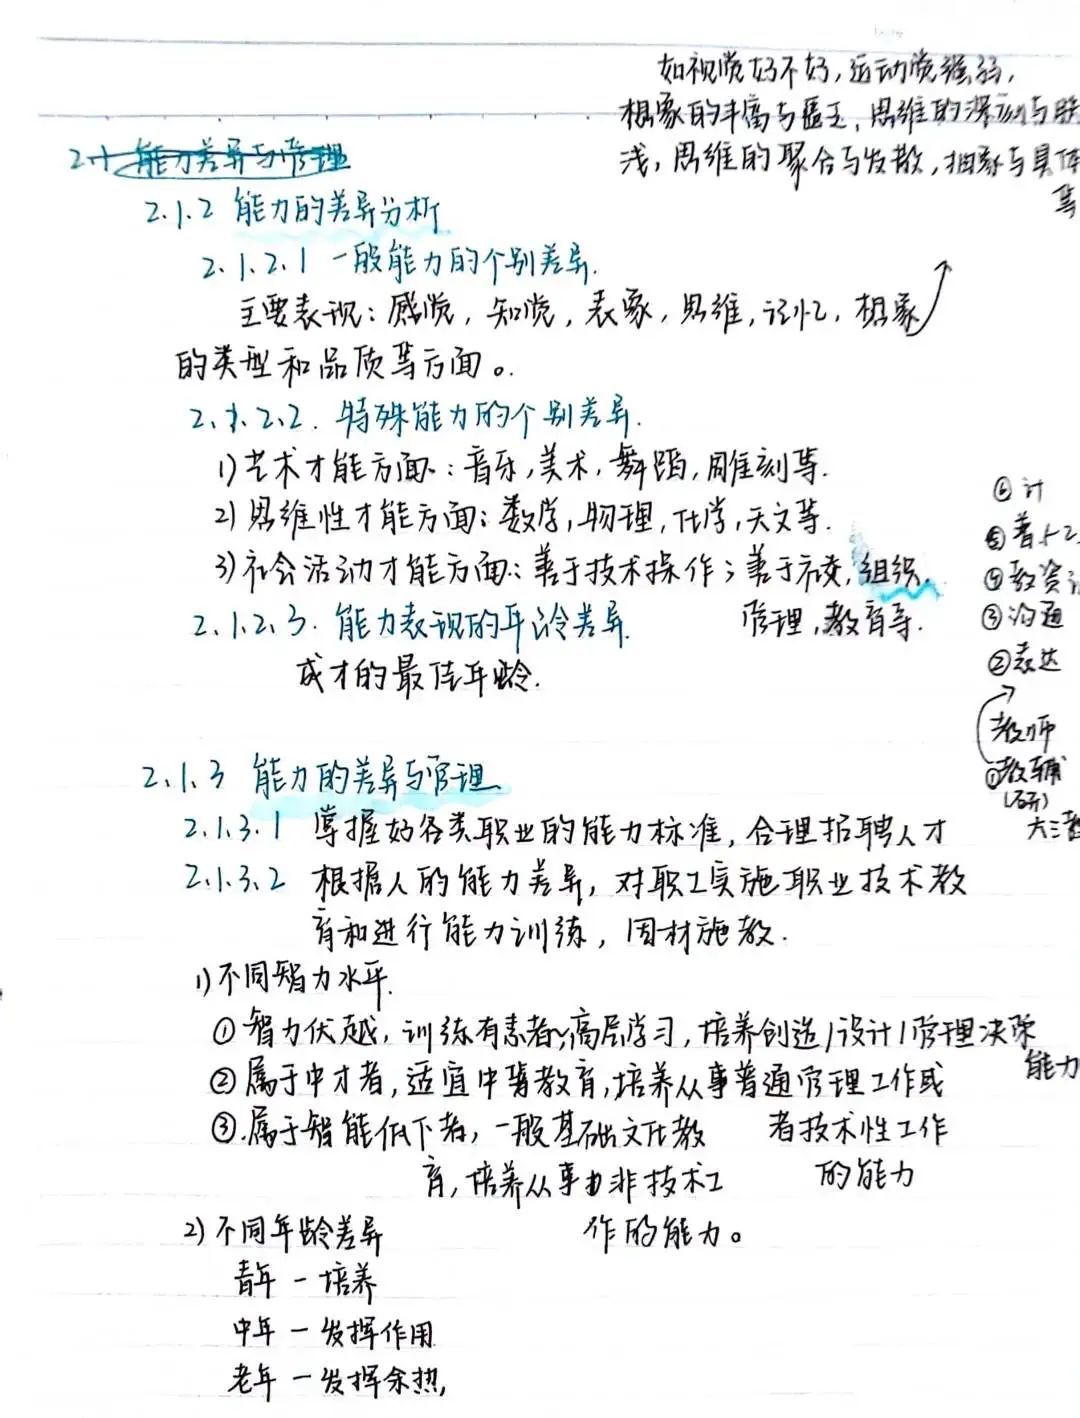 如视觉好不好,运动觉强弱,
想象的丰富与匮乏,思维的深刻与肤
浅,思维的聚合与发散,抽象与具体
等
能力差异与管理
2.1.2 能力的差异分析
2.1.2.1 一般能力的个别差异.
主要表现:感觉,知觉,表象,思维,记忆,想象
的类型和品质等方面。
2.1.2.2. 特殊能力的个别差异.
1)艺术才能方面:音乐,美术,舞蹈,雕刻等.
2)思维性才能方面:数学,物理,化学,天文等.
3)社会活动才能方面:善于技术操作;善于社交,组织,
管理,教育等.
2.1.2.3. 能力表现的年龄差异.
成才的最佳年龄.
⑥计
⑤普
④教资
③沟通
②表达
教师
①教辅
(研)
大三
2.1.3 能力的差异与管理
2.1.3.1 掌握好各类职业的能力标准,合理招聘人才
2.1.3.2 根据人的能力差异,对职工实施职业技术教
育和进行能力训练,因材施教.
1)不同智力水平.
①智力优越,训练有素者~高层学习,培养创造/设计/管理决策
能力
②属于中才者,适宜中等教育,培养从事普通管理工作或
者技术性工作
的能力
③.属于智能低下者,一般基础文化教
育,培养从事非技术工
作的能力。
2)不同年龄差异
青年一培养
中年一发挥作用
老年一发挥余热,